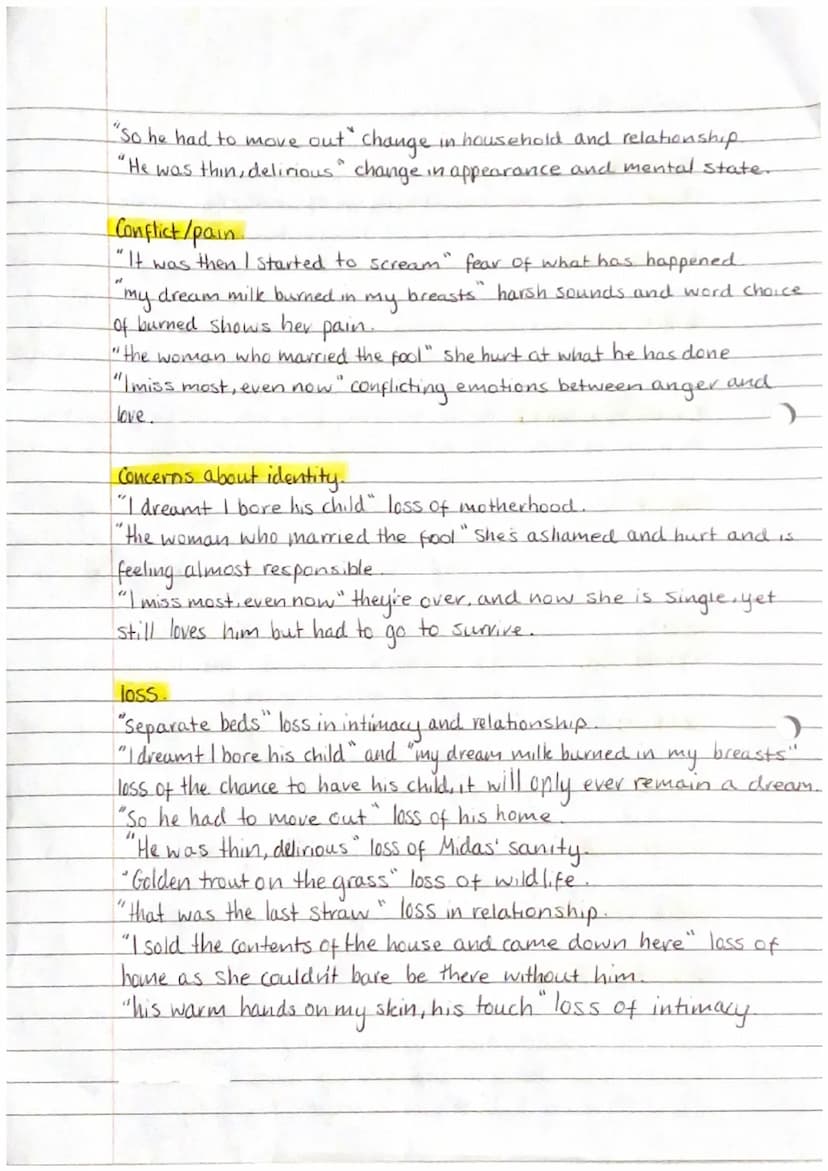 "So he had to move out" change in household and relationship
"He was thin, delirious" change in appearance and mental state.
Conflict/pain.
"It was then I started to scream" fear of what has happened
"my dream milk burned in my breasts" harsh sounds and word choice
of burned shows her pain.
"the woman who married the fool" she hurt at what he has done
"I miss most, even now" conflicting emotions between anger and
love.
Concerns about identity.
"I dreamt I bore his child" loss of motherhood.
"the woman who married the fool" she's ashamed and hurt and is
feeling almost responsible.
"I miss most, even now" they're over, and now she is single, yet
still loves him but had to go to survive.
loss.
"separate beds" loss in intimacy and relationship.
"I dreamt I bore his child" and "my dream milk burned in my breasts"
loss of the chance to have his child, it will only ever remain a dream.
"So he had to move out" loss of his home.
"He was thin, delirious" loss of Midas' sanity.
"Golden trout on the grass" loss of wildlife.
"that was the last straw" loss in relationship.
"I sold the contents of the house and came down here" loss of
home as she couldn't bare be there without him.
"his warm hands on my skin, his touch" loss of intimacy